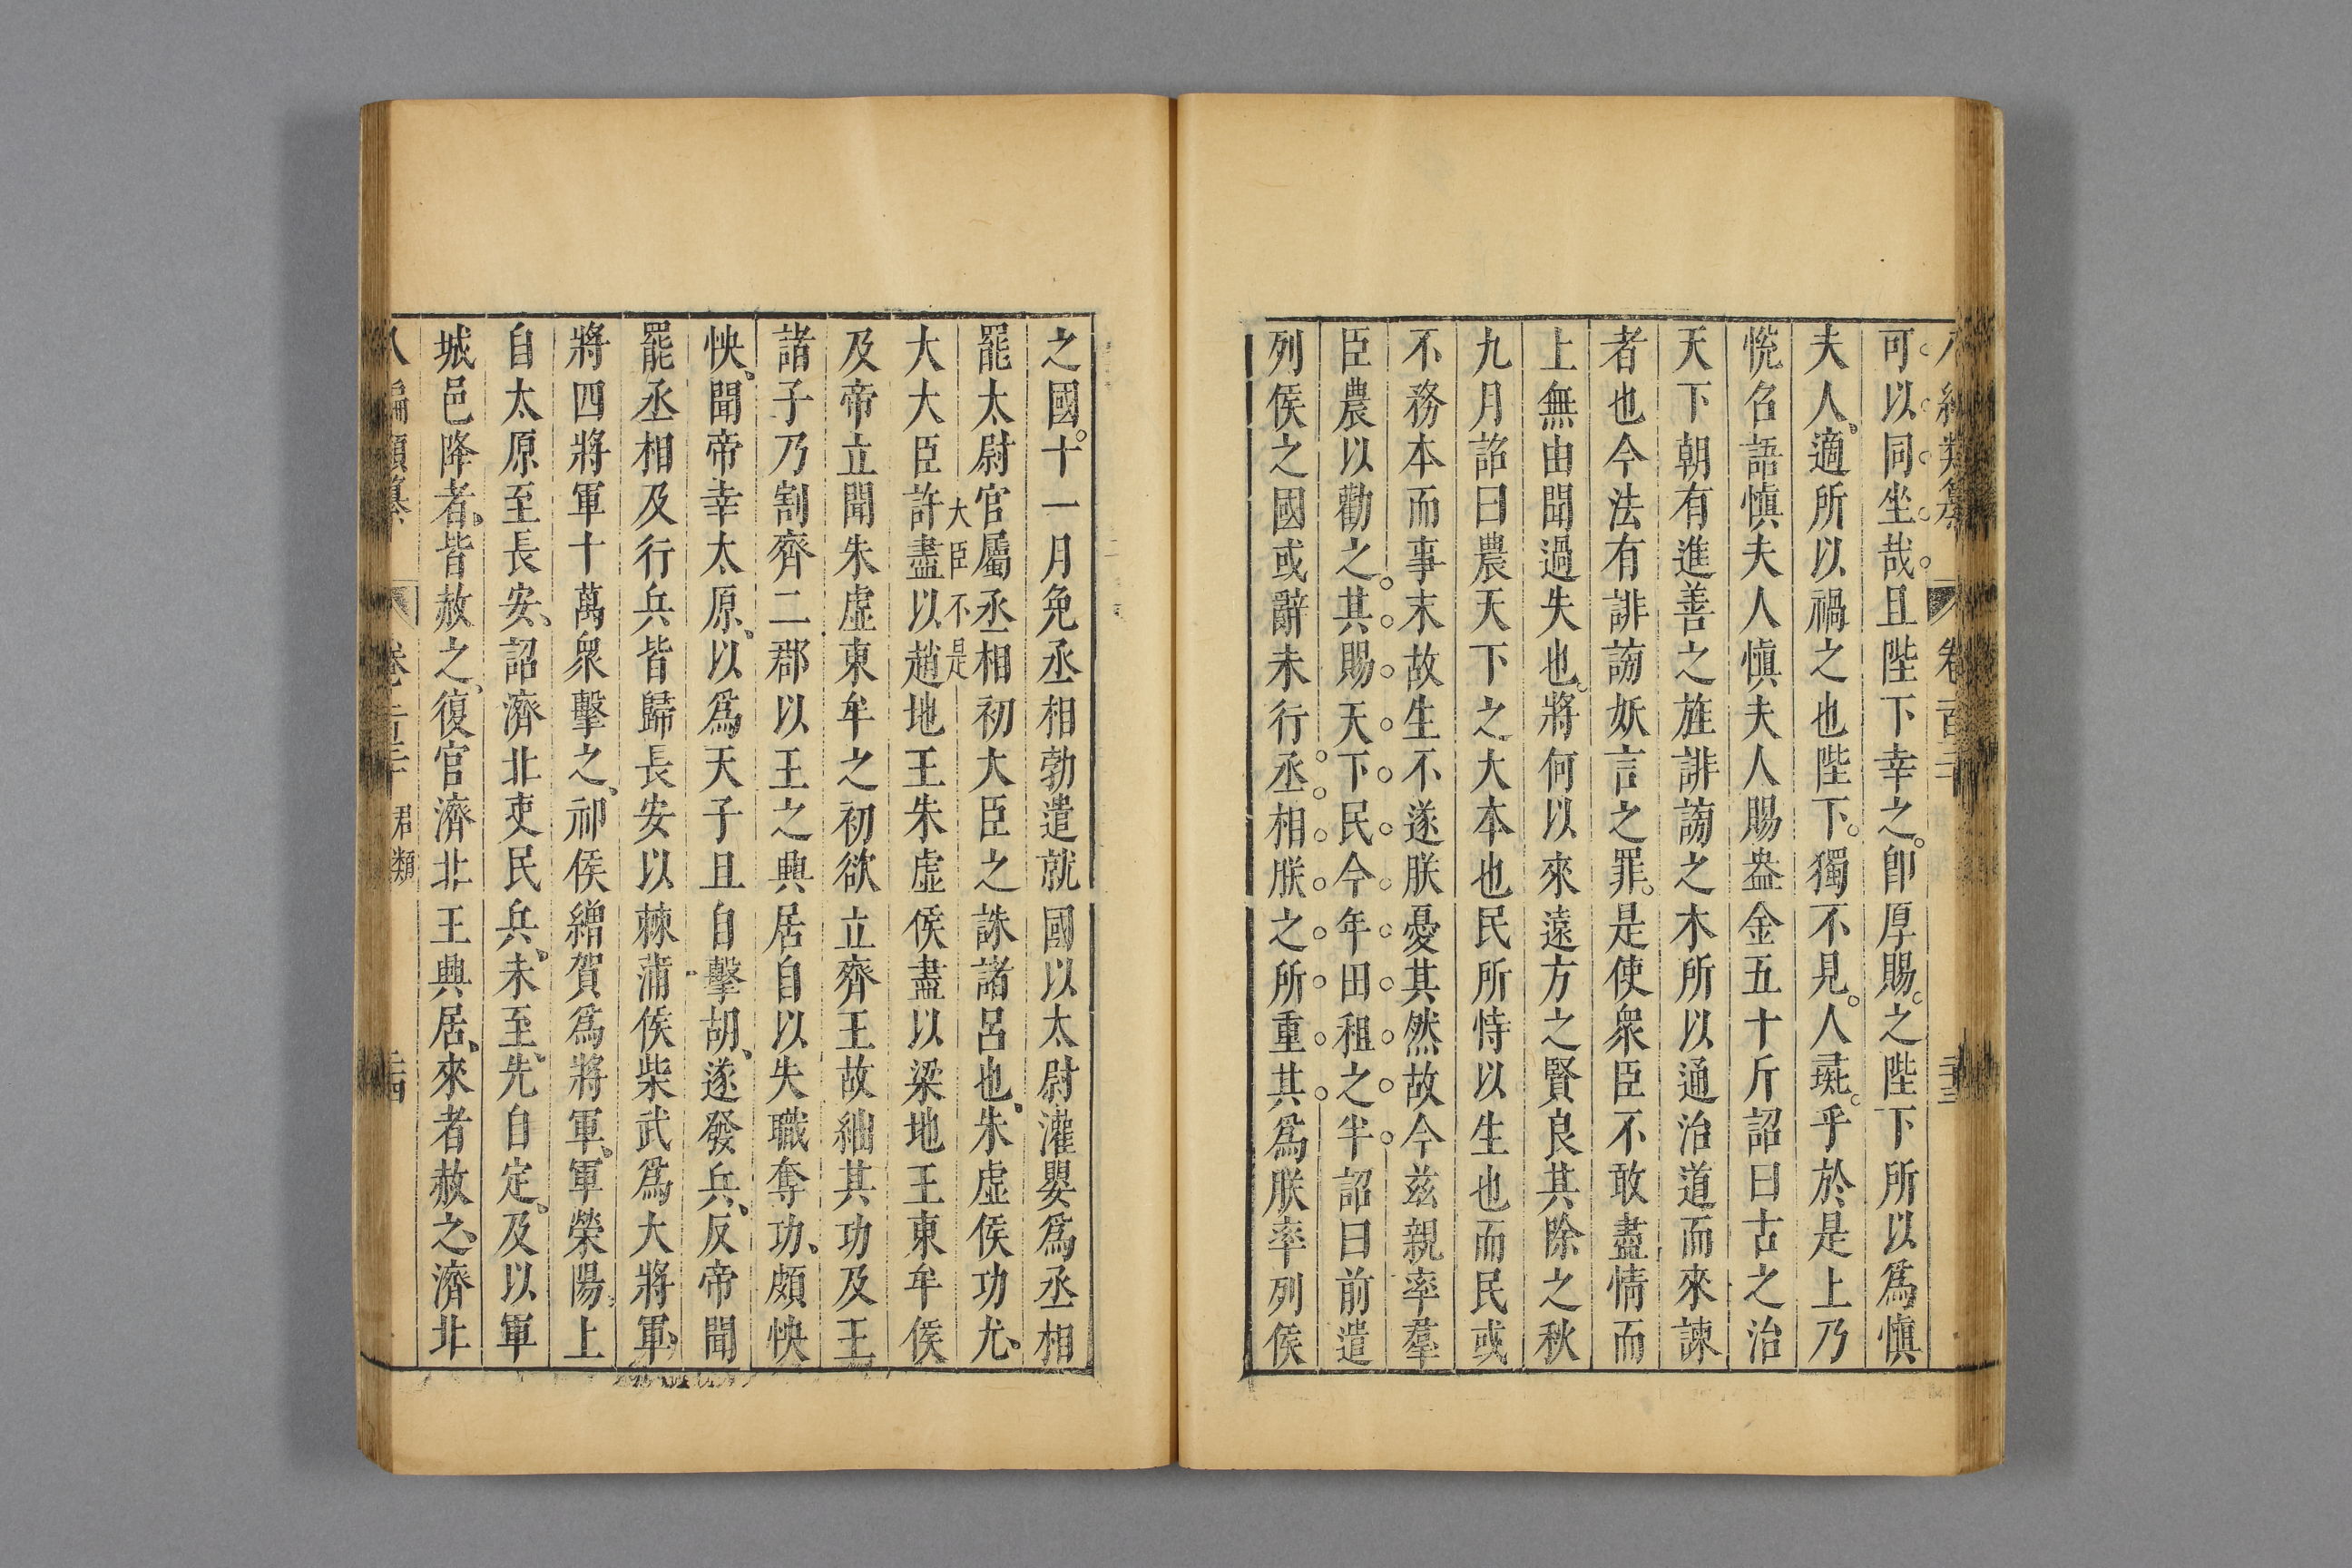 可以同坐哉且陛下幸之卽厚賜之陛下所以爲愼
夫人適所以禍之也陛下獨不見人彘乎於是上乃
恱召語愼夫人愼夫人賜盎金五十斤詔曰古之治
天下朝有進善之旌誹謗之木所以通治道而來諫
者也今法有誹謗妖言之罪是使衆臣不敢盡情而
上無由聞過失也將何以來遠方之賢良其除之秋
九月詔曰農天下之大本也民所恃以生也而民或
不務本而事末故生不遂朕憂其然故今茲親率羣
臣農以勸之其賜天下民今年田租之半詔曰前遣
列侯之國或辭未行丞相朕之所重其爲朕率列侯
之國十一月免丞相勃遣就國以太尉灌嬰爲丞相
罷太尉官屬丞相初大臣之誅諸呂也朱虛侯功尤
大臣不是
大大臣許盡以趙地王朱虛侯盡以梁地王東牟侯
及帝立聞朱虛東牟之初欲立齊王故絀其功及王
諸子乃割齊二郡以王之興居自以失職奪功頗怏
怏聞帝幸太原以爲天子且自擊胡遂發兵反帝聞
罷丞相及行兵皆歸長安以棘蒲侯柴武爲大將軍
將四將軍十萬衆擊之祁侯繒賀爲將軍軍滎陽上
自太原至長安詔濟北吏民兵未至先自定及以軍
城邑降者皆赦之復官濟北王興居來者赦之濟北
八編類纂 卷 君類